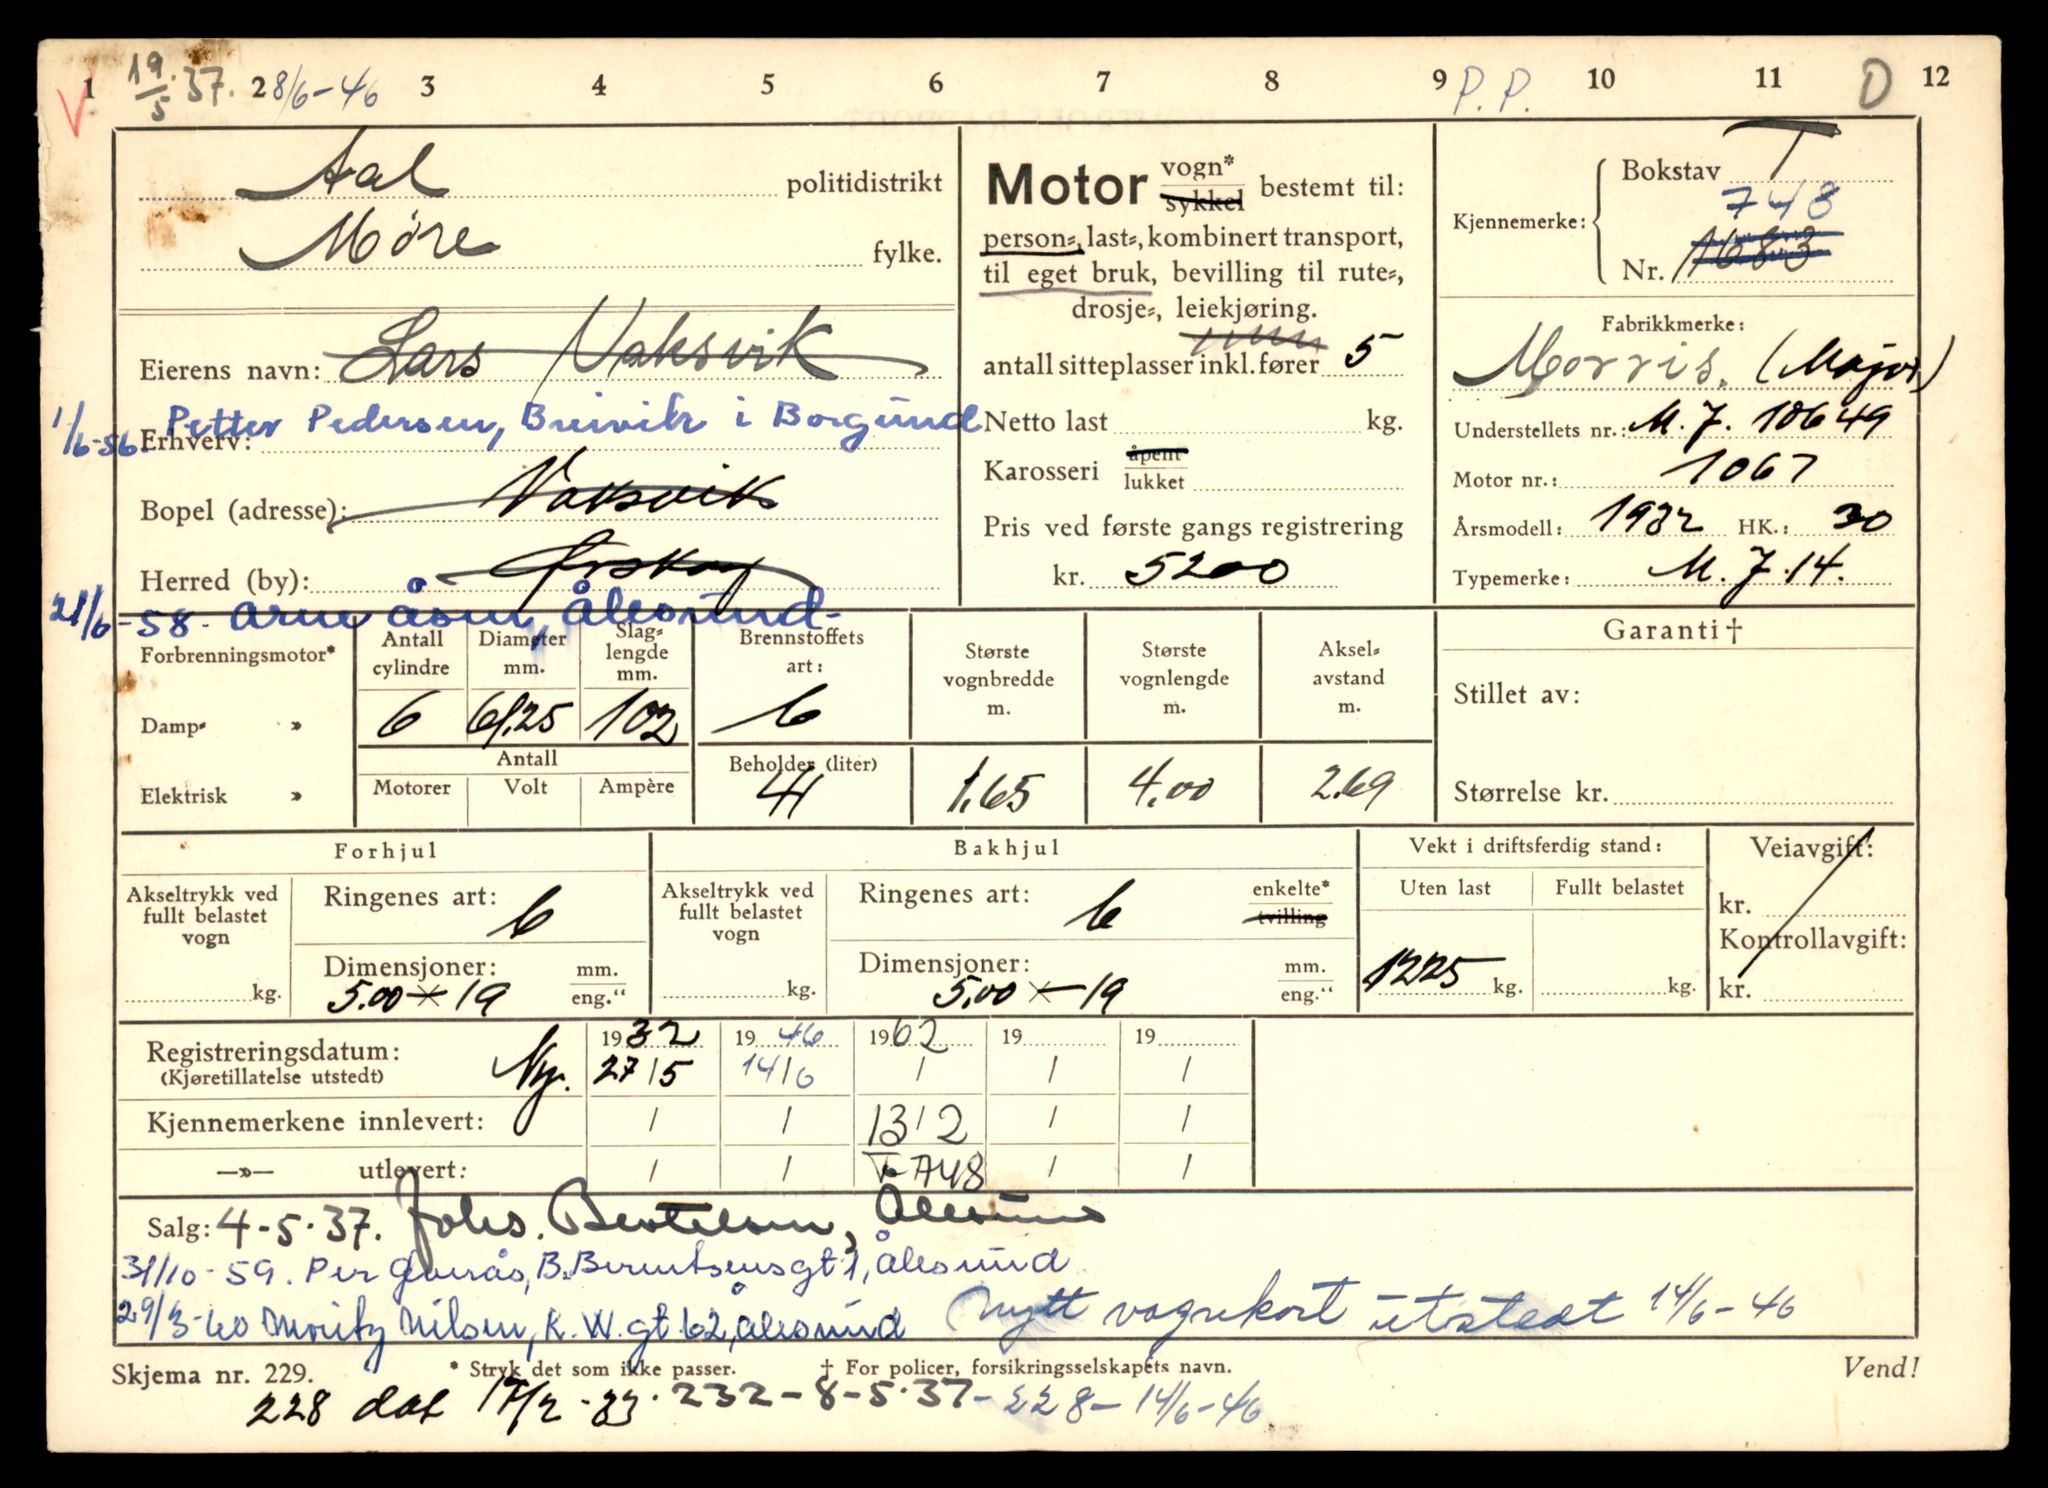 1 19/5.37. 2 8/6-46 3 4 5 6 7 8 9 P. P. 10 11 D 12
Aal politidistrikt
Møre fylke.
Eierens navn: Lars Vaksvik
1/6-56. Petter Pedersen, Breivik i Borgund
Erhverv:
Bopel (adresse): Vaksvik
Herred (by): Ørskog
21/6-58. Arne Åsen, Ålesund-
Motor vogn* sykkel bestemt til:
person=, last=, kombinert transport,
til eget bruk, bevilling til rute=,
drosje=, leiekjøring.
antall sitteplasser inkl. fører 5
Netto last kg.
Karosseri åpent lukket
Pris ved første gangs registrering
kr. 5200
Kjennemerke: Bokstav T
748
Nr. 1683
Fabrikkmerke:
Morris. (Major)
Understellets nr.: M. J. 10649
Motor nr.: 1067
Årsmodell: 1932 HK.: 30
Typemerke: M. J. 14.
Forbrenningsmotor*
Damp= »
Elektrisk »
Antall cylindre 6
Diameter mm. 61,25
Slag= lengde mm. 102
Antall
Motorer Volt Ampère
Brennstoffets art: b
Beholder (liter) 41
Største vognbredde m. 1.65
Største vognlengde m. 4.00
Aksel= avstand m. 2.69
Garanti †
Stillet av:
Størrelse kr.
Forhjul
Akseltrykk ved fullt belastet vogn kg.
Ringenes art: b
Dimensjoner: mm.
5.00 × 19 eng.“
Bakhjul
Akseltrykk ved fullt belastet vogn kg.
Ringenes art: b enkelte* tvilling
Dimensjoner: mm.
5.00 × 19 eng.“
Vekt i driftsferdig stand:
Uten last Fullt belastet
1225 kg. kg.
Veiavgift:
kr.
Kontrollavgift:
kr.
Registreringsdatum: Ny. 1932 1946 1962 19 19
(Kjøretillatelse utstedt) 27/5 14/6 / / /
Kjennemerkene innlevert: / / 13/2 / /
—»— utlevert: / / T-748 / /
Salg: 4-5.37. Johs. Bertelsen, Ålesund
31/10-59. Per Gverås, B. Berentsensgt. 1, Ålesund
29/3-60 Moritz Nilsen, K. W. gt. 62, Ålesund Nytt vognkort utstedt 14/6-46
Skjema nr. 229. * Stryk det som ikke passer. † For policer, forsikringsselskapets navn. Vend!
228 dat 17/2-33. 232-8-5.37-228-14/6-46